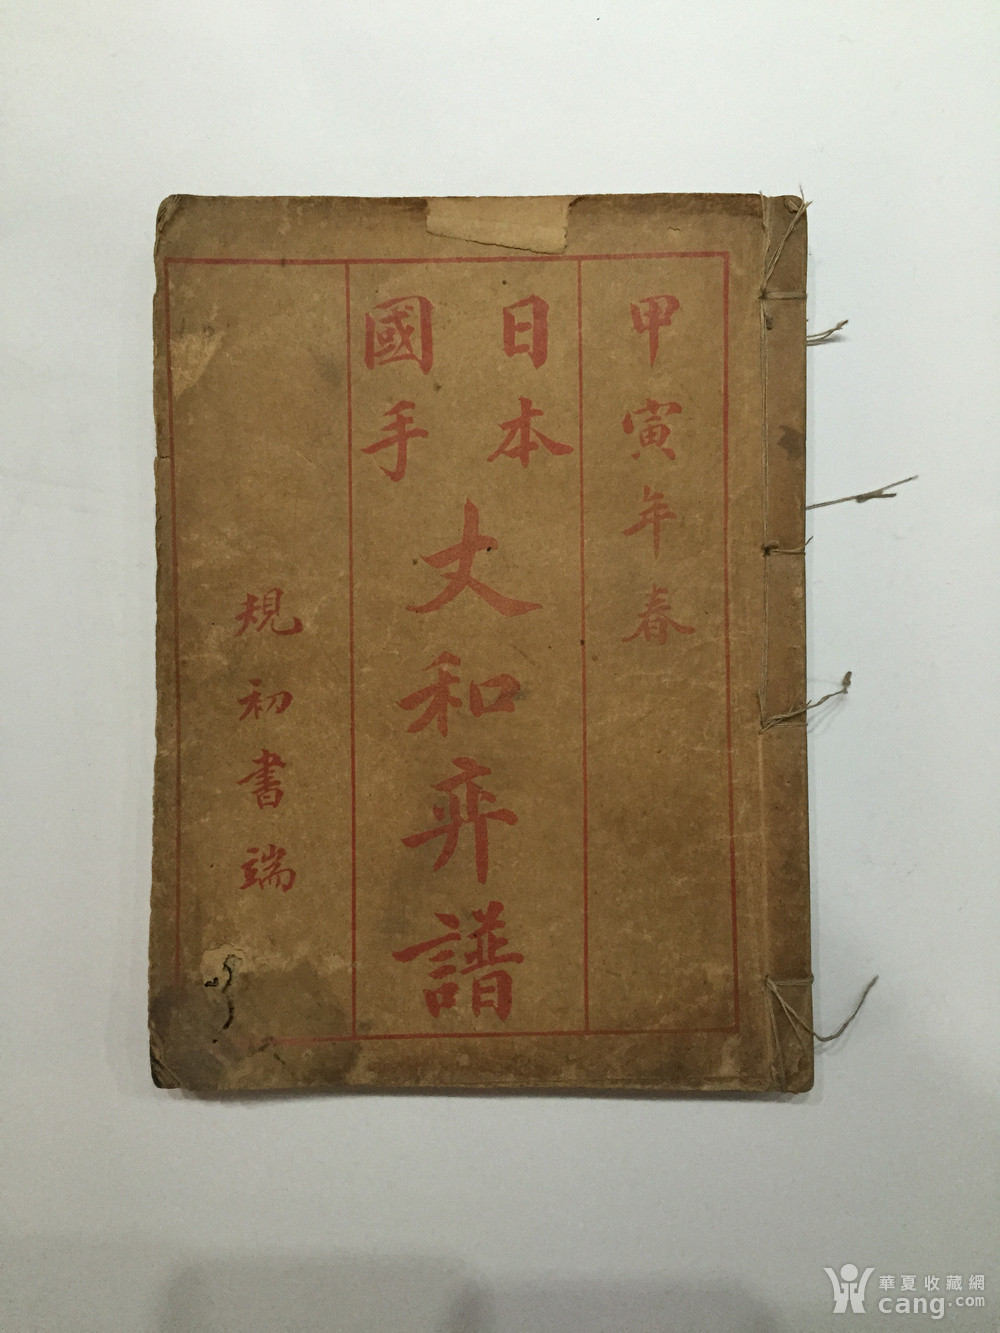 甲寅年春
日本
國手
丈和弈譜
規初書端
華夏收藏網
cang.com